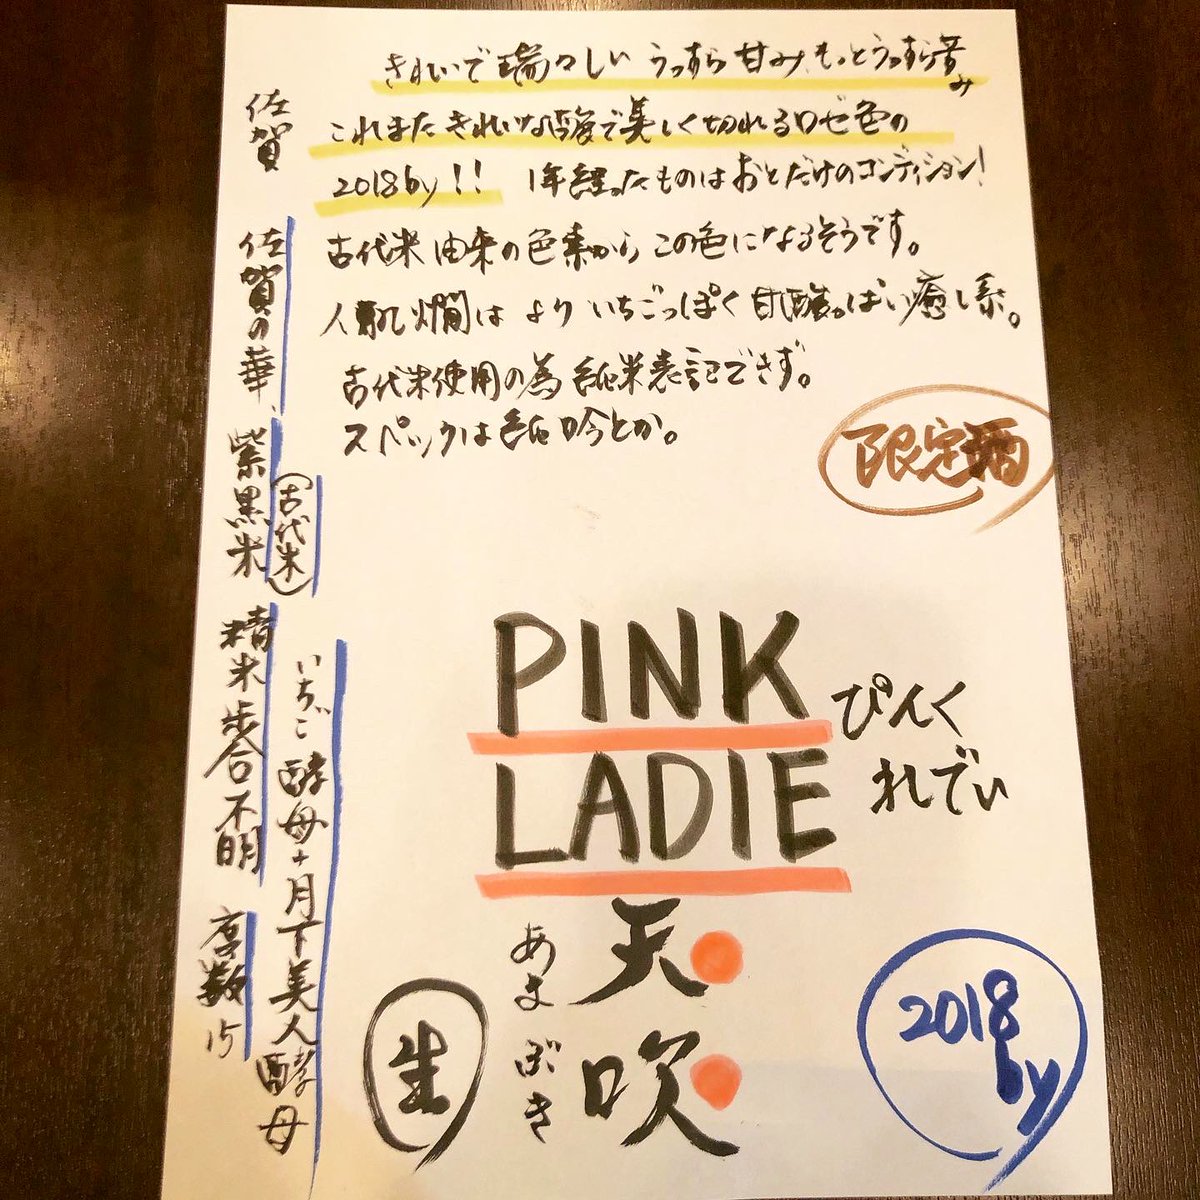 きれいで瑞々しい うっすら甘み、もっとうっすら苦み
これまたきれいな酸で美しく切れるロゼ色の
2018by!! 1年経ったものはおとだけのコンディション!
古代米由来の色素からこの色になるそうです。
人肌燗は よりいちごっぽく甘酸っぱい癒し系。
古代米使用の為純米表記できず。
スペックは純吟とか。
限定酒
佐賀
佐賀の華、
紫黒米
(古代米)
精米歩合不明
いちご酵母+月下美人酵母
度数15
PINK
LADIE
ぴんく
れでぃ
天吹
あまぶき
生
2018by